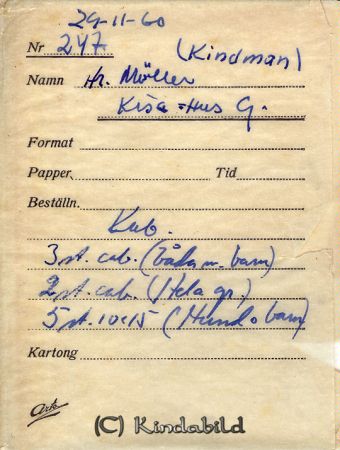 29-11-60
Nr 247 (Kindman)
Namn Hr. Möller
Kisa-Hus G.
Format
Papper Tid
Beställn.
Kub.
3 st. cab. (båda m. barn)
2 st. cab. (Hela gr.)
5 st. 10x15 (Hund o barn)
Kartong
Ark
(C) Kindabild